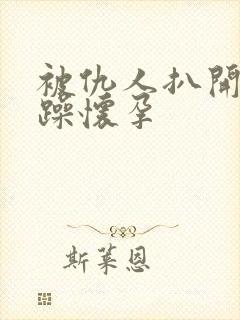 被仇人扒開
躁懷孕
斯萊恩